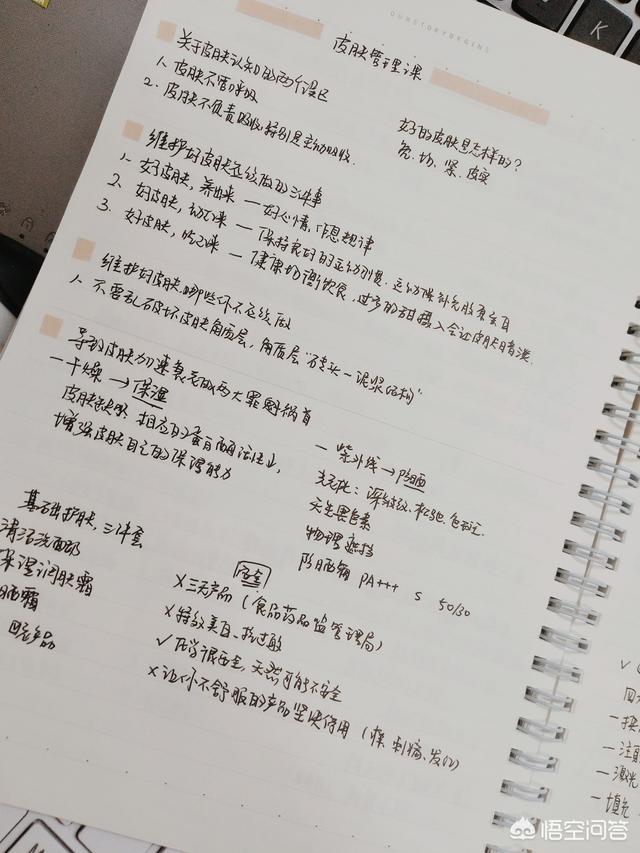 OURSTORYBEGINS
皮肤管理课
关于皮肤认知的两个误区
1. 皮肤不需呼吸
2. 皮肤不负责吸收,特别是主动吸收.
好的皮肤是怎样的?
亮. 均. 紧. 皮实
维护好皮肤应该做的三件事
1. 好皮肤, 养出来 — 好心情, 作息规律
2. 好皮肤, 动出来 — 保持良好的运动习惯, 运动后补充胶原蛋白
3. 好皮肤, 吃出来 — 健康均衡饮食, 过多的甜摄入会让皮肤暗淡.
维护好皮肤哪些坏不应该做
1. 不要乱破坏皮肤角质层, 角质层"砖头一泥浆结构"
导致皮肤加速衰老的两大罪魁祸首
一干燥 → 保湿
皮肤缺水, 相应的蛋白酶活性
增强皮肤自己的保湿能力
一紫外线 → 防晒
光老化: 深皱纹. 松弛. 色斑
天生黑色素
物理遮挡
防晒霜 PA+++ S 50/30
基础护肤, 三件套
清洁洗面奶
保湿润肤霜
晒霜
产品
安全
× 三无产品 (食品药品监管管理局)
× 特效美白、抗过敏
✓ 化学很安全, 天然可能不安全
× 让你不舒服的产品坚决停用 (痒. 刺痛、发红)
一注射
一激光
一填充
悟空问答